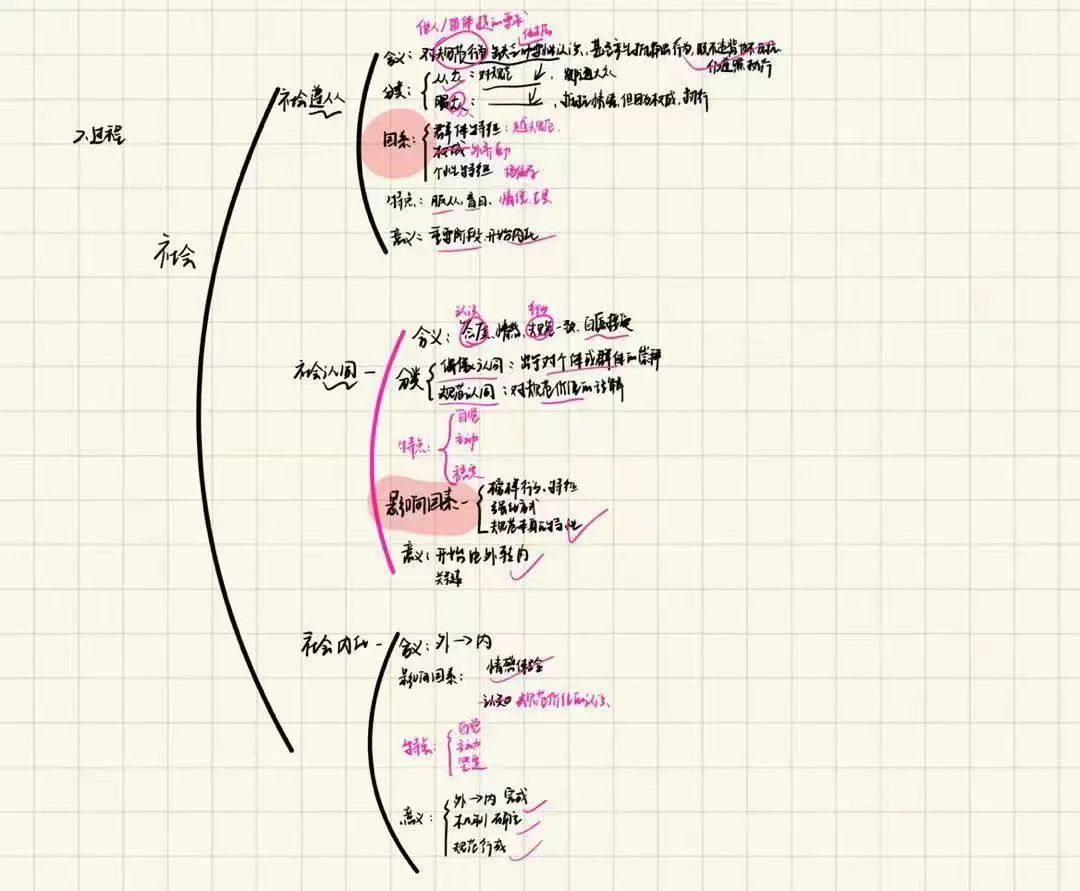 他人/团体提的要求
依据
含义：对规范行为缺乏 认识，甚至产生抵触
仍遵照执行
社会遵从
分类：从众：对规范
服从： 抵触情绪，但因为权威，执行
2.过程
因素：群体特征：越 规范
权威 外界
个性特征
特点：服从，盲目，情境
意义：重要阶段，开始内化
社会
认识 行为
含义：态度、情感、规范一致，自愿接受
社会认同
分类 偶像认同：出于对个体或群体的崇拜
规范认同：对规范价值的诠解
特点： 自觉
主动
稳定
影响因素 榜样行为、特征
强化方式
规范本身的特性
意义：开始由外转内
关键
社会内化 含义：外→内
影响因素：情感体验
认知 规范价值的认识
特点： 自觉
主动
坚定
意义： 外→内 完成
机制 确立
规范行成